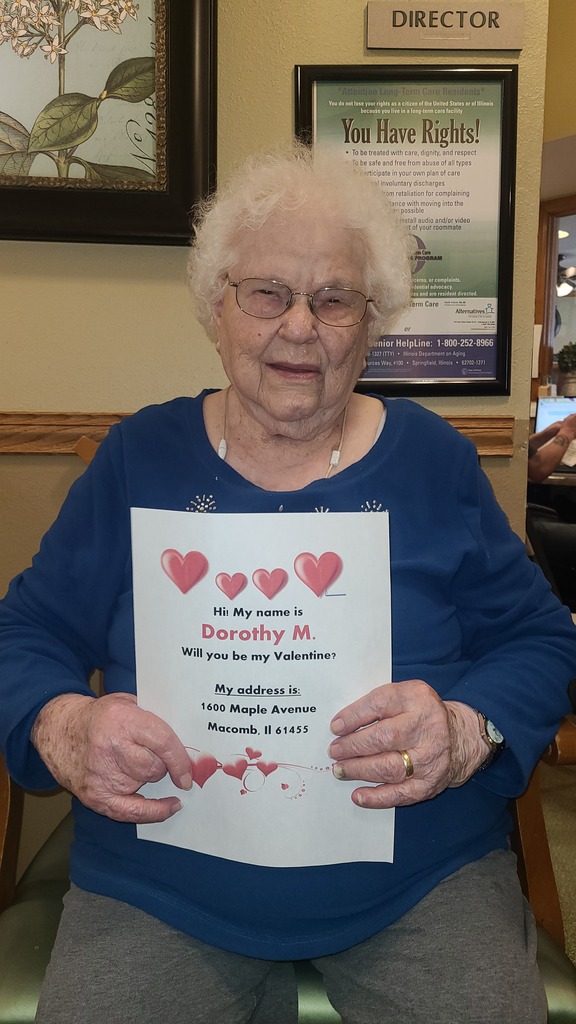 DIRECTOR
"Attention Long-Term Care Residents"
You do not lose your rights as a citizen of the United States or of Illinois
because you live in a long-term care facility
You Have Rights!
• To be treated with care, dignity, and respect
• To be safe and free from abuse of all types
participate in your own plan of care
involuntary discharges
from retaliation for complaining
with moving into the
possible
install audio and/or video
of your roommate
Care
PROGRAM
or complaints.
advocacy
and are resident directed.
Term Care
Alternatives
or
Senior HelpLine: 1-800-252-8966
(TTY) • Illinois Department on Aging
Way, #100 • Springfield, Illinois 62702-1271
Hi! My name is
Dorothy M.
Will you be my Valentine?
My address is:
1600 Maple Avenue
Macomb, Il 61455